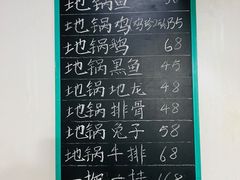 地锅鱼
地锅鸡
地锅鹅 68
地锅黑鱼 45
地锅地龙 48
地锅排骨 48
地锅兔子 58
地锅牛排 68
68